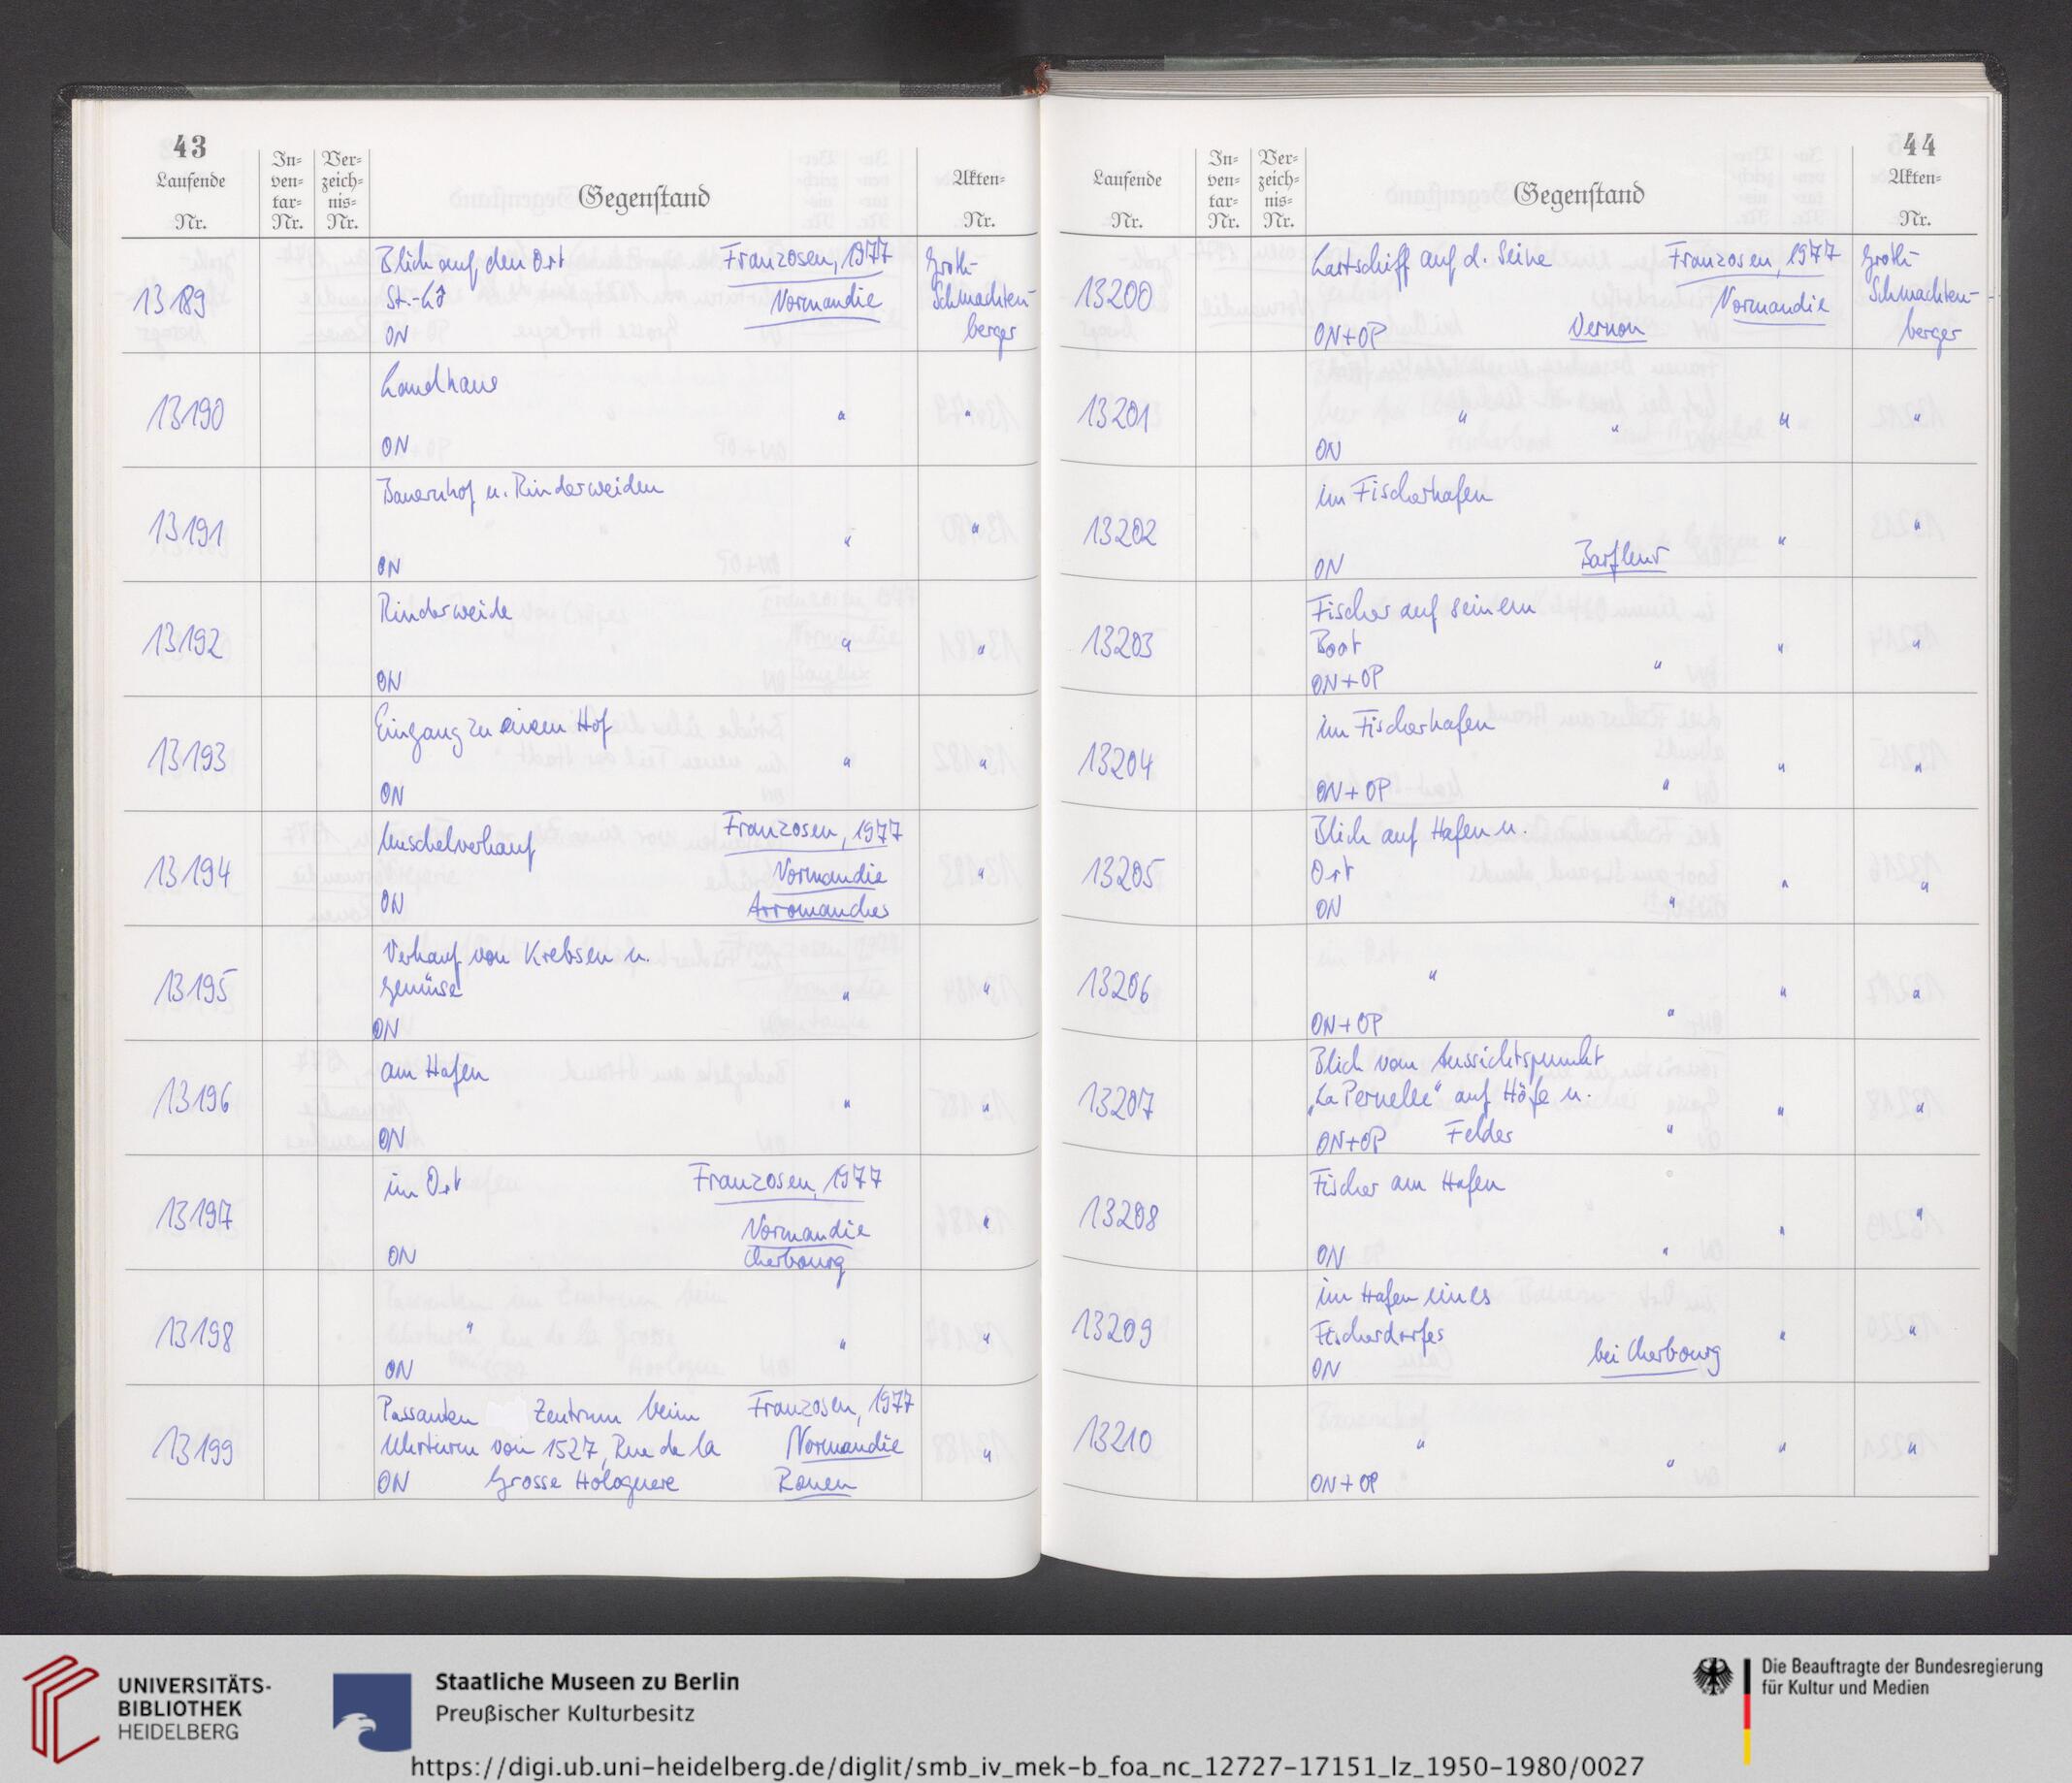 43
Laufende Nr.
In=ven=tar=Nr.
Ver=zeich=nis=Nr.
Gegenstand
Akten=Nr.
13189 Blick auf den Ort Franzosen, 1977 Groth-
St.-Lô Normandie Schmachten-
ON berger
13190 Landhaus " "
ON
13191 Bauernhof u. Rinderweiden " "
ON
13192 Rinderweide " "
ON
13193 Eingang zu einem Hof " "
ON
13194 Muschelverkauf Franzosen, 1977 "
Normandie
ON Arromanches
13195 Verkauf von Krebsen u.
Gemüse " "
ON
13196 am Hafen " "
ON
13197 im Ort Franzosen, 1977 "
Normandie
ON Cherbourg
13198 " " "
ON
13199 Passanten Zentrum beim Franzosen, 1977
Uhrturm von 1527, Rue de la Normandie "
ON Grosse Hologuere Rouen
44
Laufende Nr.
In=ven=tar=Nr.
Ver=zeich=nis=Nr.
Gegenstand
Akten=Nr.
13200 Lastschiff auf d. Seine Franzosen, 1977 Groth-
Normandie Schmachten-
ON+OP Vernon berger
13201 " " " "
ON
13202 im Fischerhafen " "
ON Barfleur
13203 Fischer auf seinem
Boot " " "
ON+OP
13204 im Fischerhafen " "
ON+OP "
13205 Blick auf Hafen u.
Ort " "
ON "
13206 " " "
ON+OP "
13207 Blick vom Aussichtspunkt
„La Pernelle" auf Höfe u. " "
ON+OP Felder "
13208 Fischer am Hafen " "
ON "
13209 im Hafen eines
Fischerdorfes " "
ON bei Cherbourg
13210 " " " "
ON+OP
UNIVERSITÄTS-
BIBLIOTHEK
HEIDELBERG
Staatliche Museen zu Berlin
Preußischer Kulturbesitz
Die Beauftragte der Bundesregierung
für Kultur und Medien
https://digi.ub.uni-heidelberg.de/diglit/smb_iv_mek-b_foa_nc_12727-17151_lz_1950-1980/0027